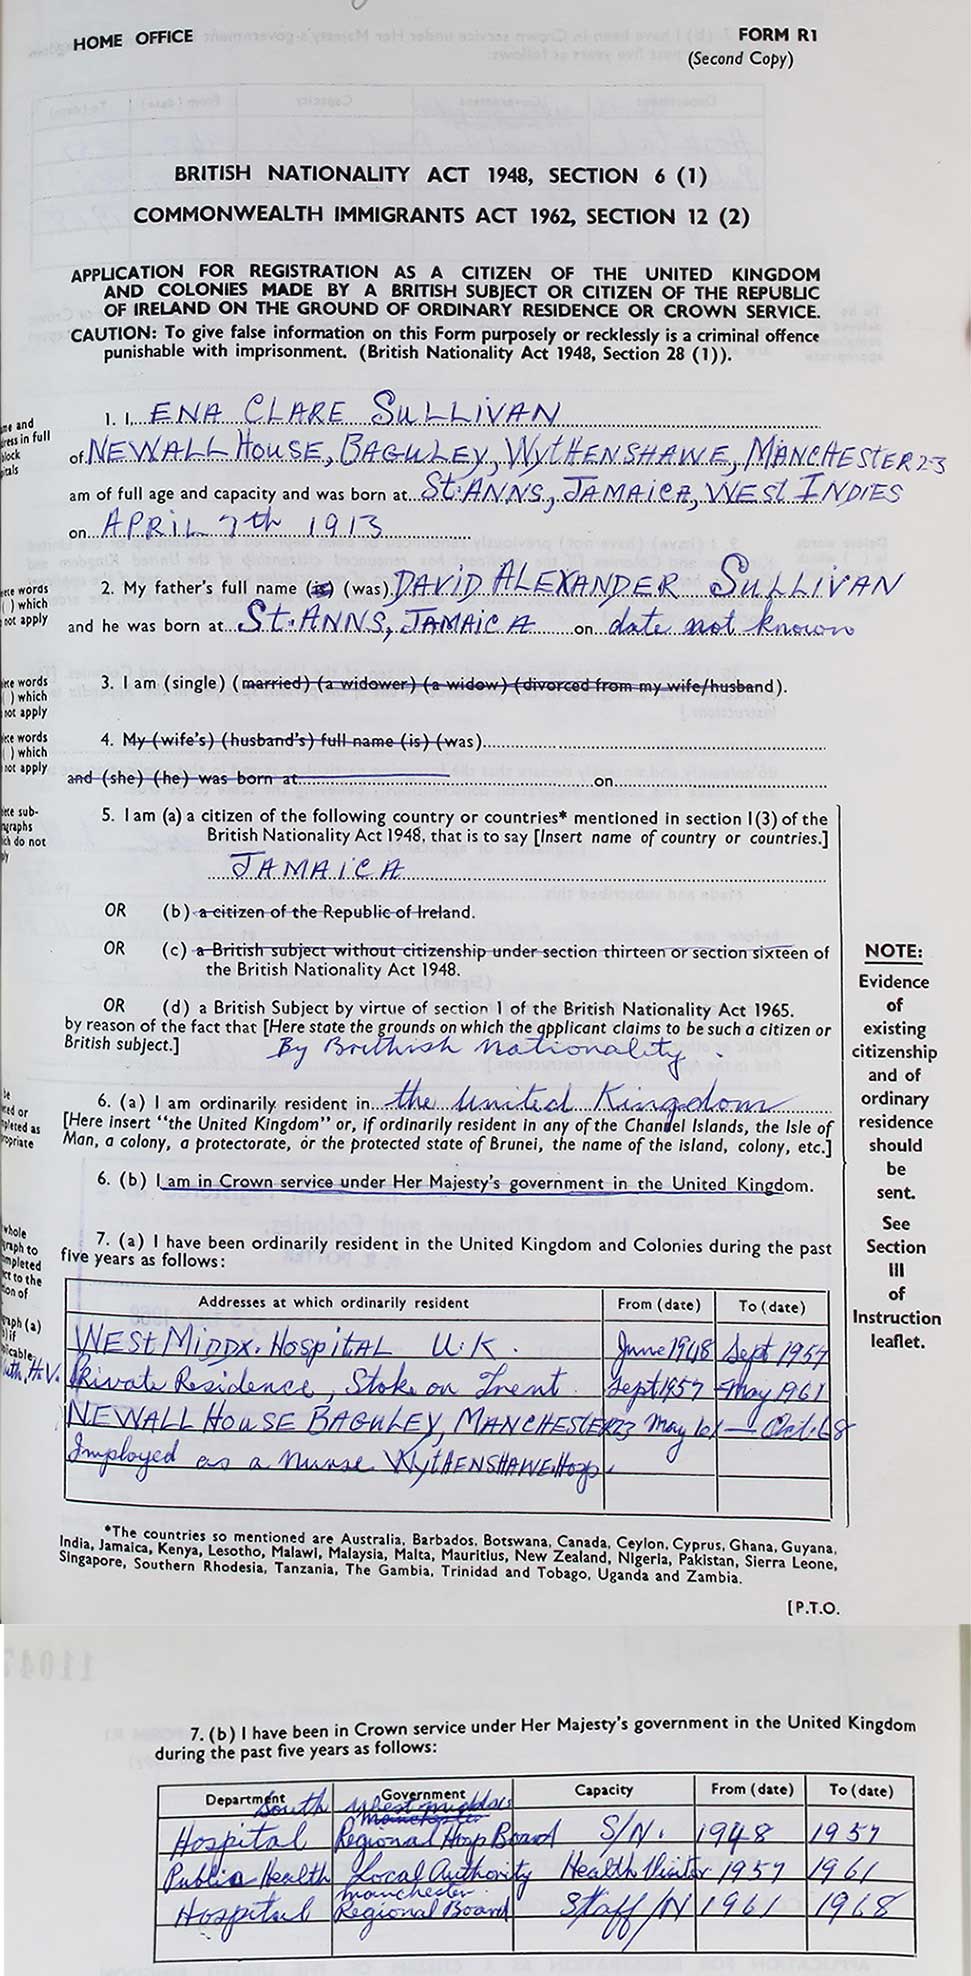 HOME OFFICE
FORM R1
(Second Copy)
BRITISH NATIONALITY ACT 1948, SECTION 6 (1)
COMMONWEALTH IMMIGRANTS ACT 1962, SECTION 12 (2)
APPLICATION FOR REGISTRATION AS A CITIZEN OF THE UNITED KINGDOM
AND COLONIES MADE BY A BRITISH SUBJECT OR CITIZEN OF THE REPUBLIC
OF IRELAND ON THE GROUND OF ORDINARY RESIDENCE OR CROWN SERVICE.
CAUTION: To give false information on this Form purposely or recklessly is a criminal offence
punishable with imprisonment. (British Nationality Act 1948, Section 28 (1)).
1. I, ENA CLARE SULLIVAN
of NEWALL HOUSE, BAGULEY, WYTHENSHAWE, MANCHESTER 23
am of full age and capacity and was born at St. ANNS, JAMAICA, WEST INDIES
on APRIL 7th 1913
2. My father's full name (is) (was) DAVID ALEXANDER SULLIVAN
and he was born at St. ANNS, JAMAICA on date not known
3. I am (single) (married) (a widower) (a widow) (divorced from my wife/husband).
4. My (wife's) (husband's) full name (is) (was)
and (she) (he) was born at on
5. I am (a) a citizen of the following country or countries* mentioned in section 1(3) of the
British Nationality Act 1948, that is to say [Insert name of country or countries.]
JAMAICA
OR (b) a citizen of the Republic of Ireland.
OR (c) a British subject without citizenship under section thirteen or section sixteen of
the British Nationality Act 1948.
OR (d) a British Subject by virtue of section 1 of the British Nationality Act 1965.
by reason of the fact that [Here state the grounds on which the applicant claims to be such a citizen or
British subject.] By Brithish nationality.
6. (a) I am ordinarily resident in the United Kingdom
[Here insert "the United Kingdom" or, if ordinarily resident in any of the Channel Islands, the Isle of
Man, a colony, a protectorate, or the protected state of Brunei, the name of the island, colony, etc.]
6. (b) I am in Crown service under Her Majesty's government in the United Kingdom.
7. (a) I have been ordinarily resident in the United Kingdom and Colonies during the past
five years as follows:
Addresses at which ordinarily resident From (date) To (date)
WEST MIDDX. HOSPITAL U.K. June 1948 Sept 1957
Private Residence, Stoke on Trent Sept 1957 May 1961
NEWALL HOUSE BAGULEY, MANCHESTER 23 May 61 — Oct. 68
Imployed as a Nurse WYTHENSHAWE Hosp.
*The countries so mentioned are Australia, Barbados, Botswana, Canada, Ceylon, Cyprus, Ghana, Guyana,
India, Jamaica, Kenya, Lesotho, Malawi, Malaysia, Malta, Mauritius, New Zealand, Nigeria, Pakistan, Sierra Leone,
Singapore, Southern Rhodesia, Tanzania, The Gambia, Trinidad and Tobago, Uganda and Zambia.
[P.T.O.
NOTE:
Evidence
of
existing
citizenship
and of
ordinary
residence
should
be
sent.
See
Section
III
of
Instruction
leaflet.
7. (b) I have been in Crown service under Her Majesty's government in the United Kingdom
during the past five years as follows:
Department Government Capacity From (date) To (date)
South West Middx
Manchester
Hospital Regional Hosp Board S/N. 1948 1957
Public Health Local Authority Health Visitor 1957 1961
Manchester
Hospital Regional Board Staff/N 1961 1968